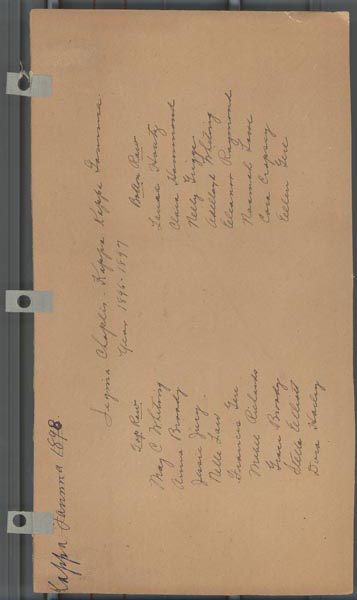 Kappa Gamma 1898.
Sigma Chapter - Kappa Kappa Gamma.
Year 1896-1897
Top Row
May C Whiting
Anna Broady
Jessie Jury.
Nelle Lau
Frances Gere
Mabel Richards
Grace Broady
Stella Elliott
Dora Harley
Bottom Row
Lenae Houtz
Clara Hammond
Nelly Griggs
Adelloyd Whiting
Eleanor Raymond
Cora
Ellen Gere